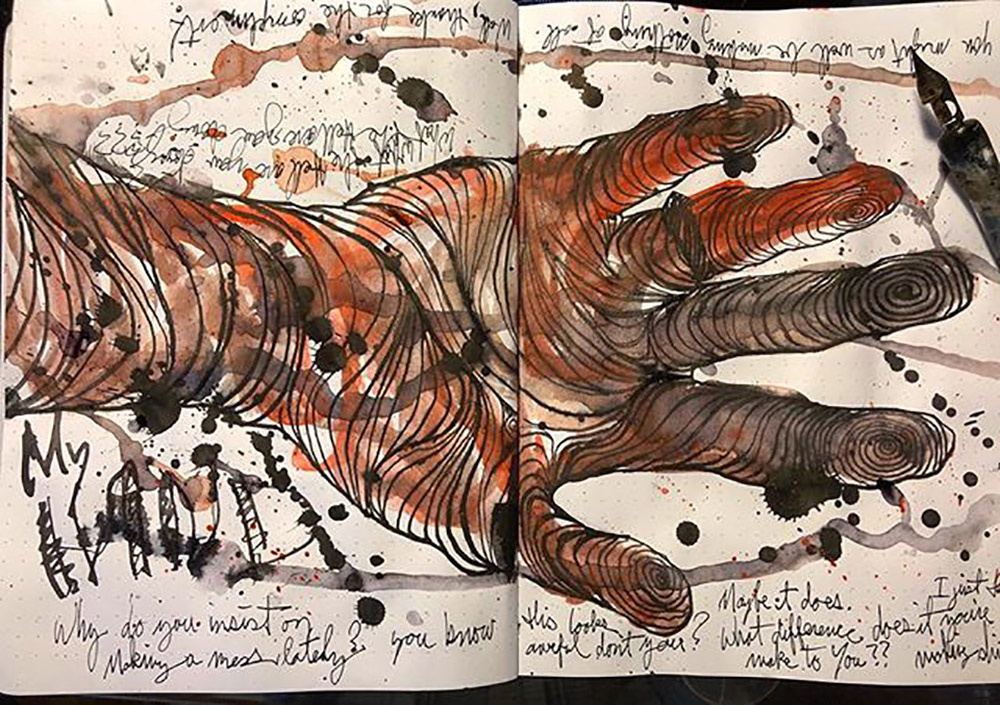 My
HAND
Why do you insist on
Making a mess lately?
you know
this looks
awful dont you?
Maybe it does.
What difference does it
make to you??
I just
you're
making
you might as well be making nothing at all.
Well, thanks for the compliment!
What the Hell are you doing